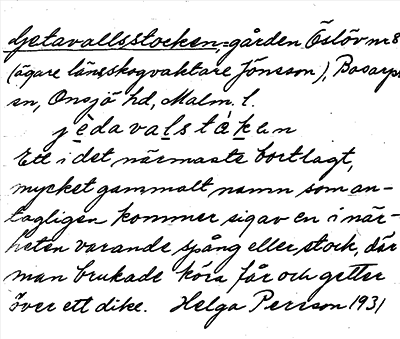 Getavallsstocken, gården Öslöv nr 8
(ägare länsskogvaktare Jönsson), Bosarps
sn, Onsjö hd, Malm. l.
jèdavalstákan
Ett i det närmaste bortlagt,
mycket gammalt namn som an-
tagligen kommer sig av en i när-
heten varande spång eller stock, där
man brukade köra får och getter
över ett dike. Helga Persson 1931